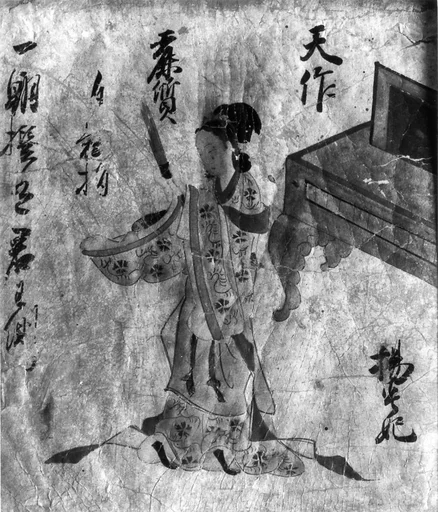 天作
麗質
自難捐
一朝撰君王側
楊貴妃